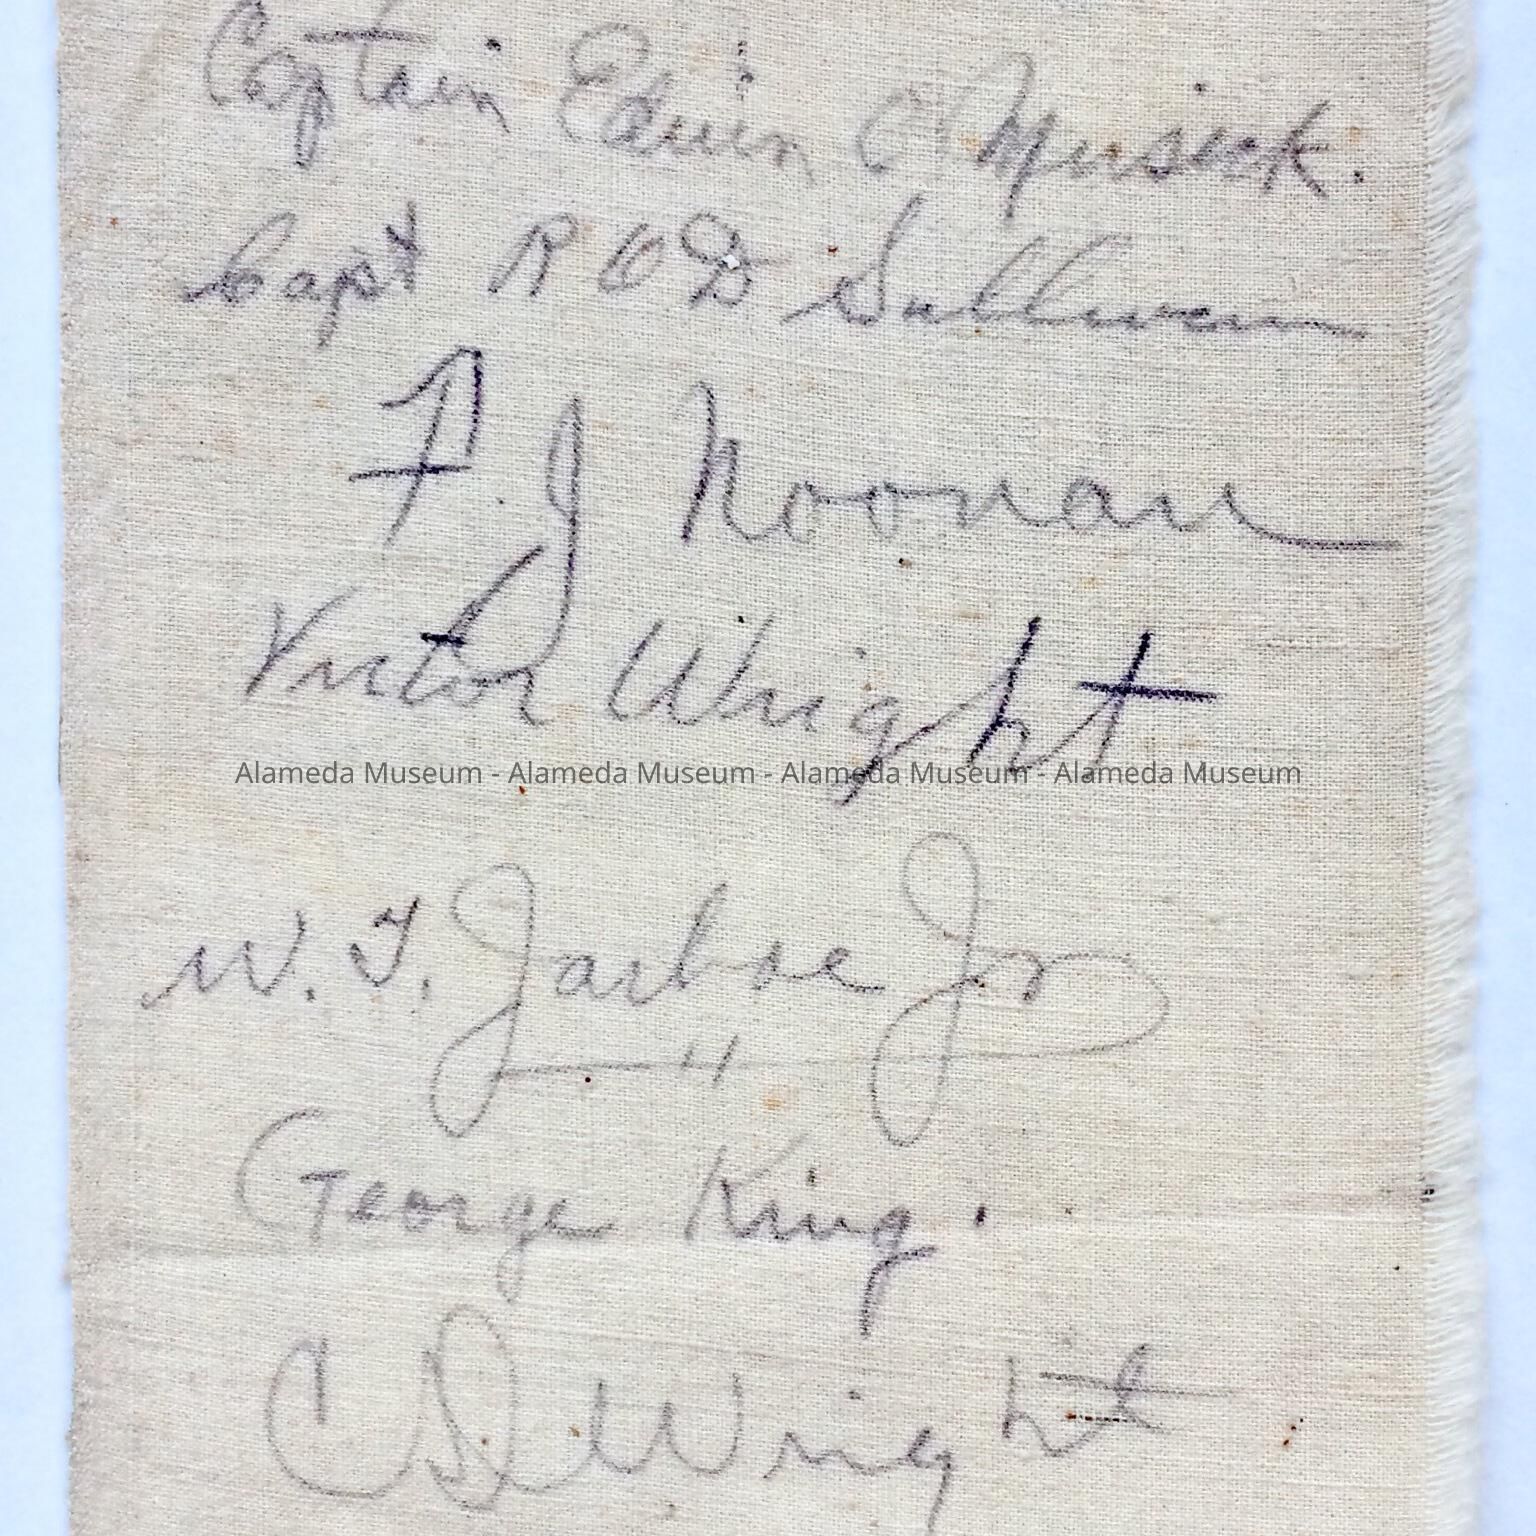 Captain Edwin C Musick.
Capt R O D Sullivan
F. J Noonan
Victor Wright
Alameda Museum - Alameda Museum - Alameda Museum - Alameda Museum
W. T. Jarboe Jr
George King.
C D Wright